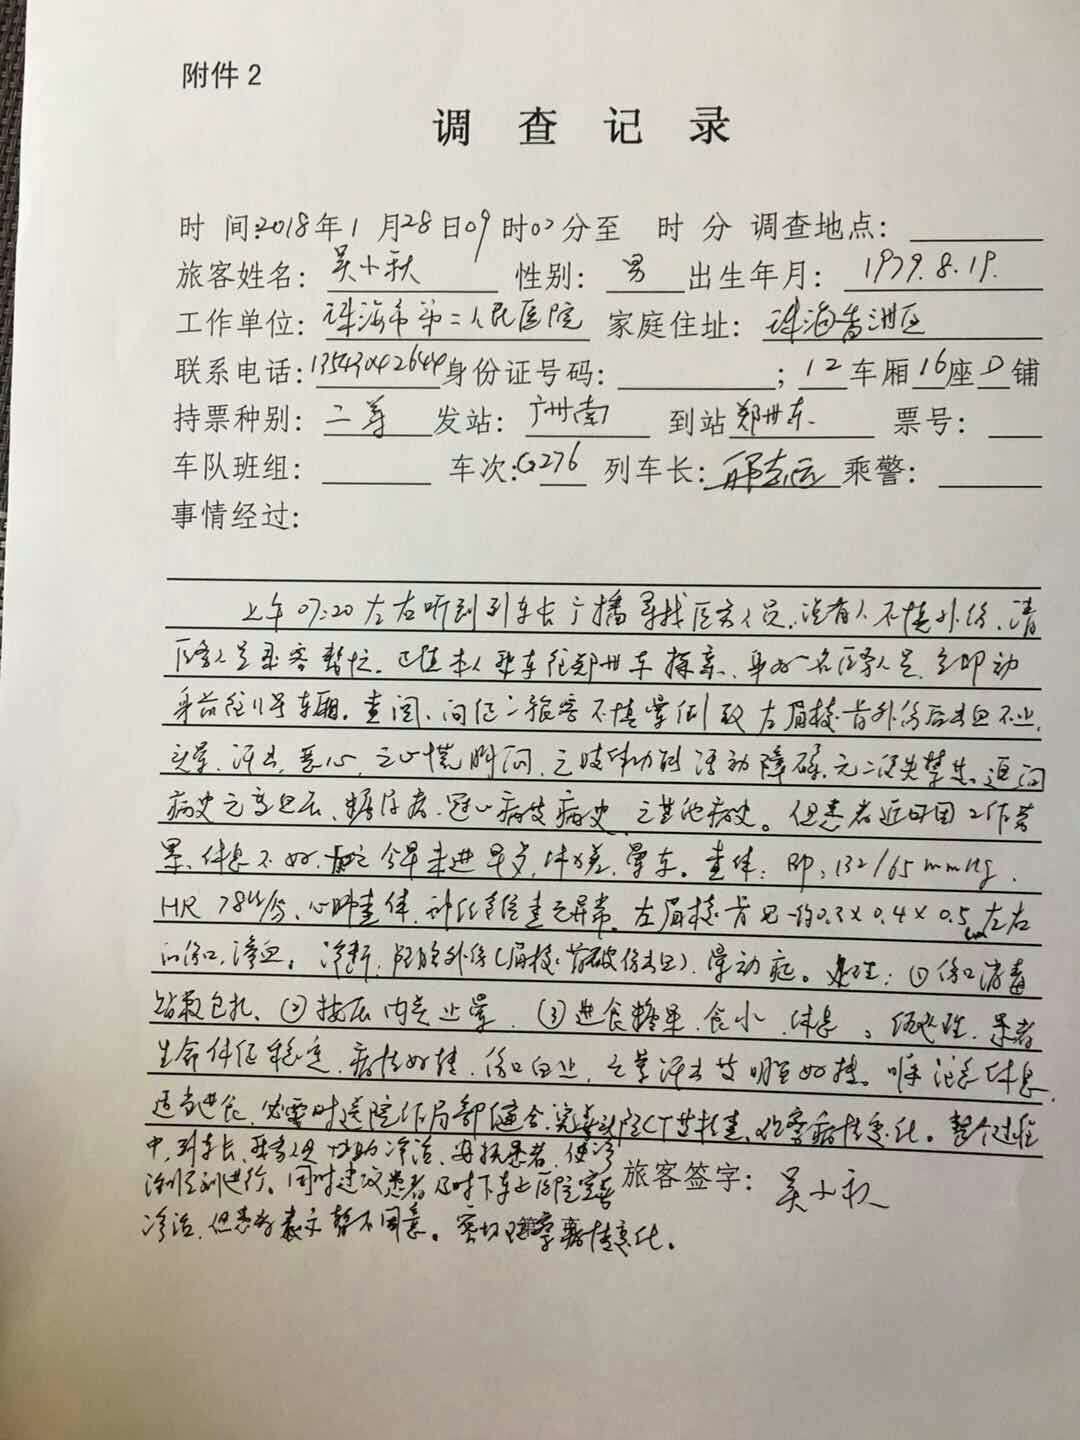 附件2
调查记录
时 间:2018年1月28日09时00分至 时 分 调查地点:
旅客姓名: 吴小秋 性别: 男 出生年月: 1979.8.19.
工作单位: 珠海市第二人民医院 家庭住址: 珠海香洲区
联系电话:13543042644身份证号码: ; 12车厢16座D铺
持票种别: 二等 发站: 广州南 到站郑州东 票号:
车队班组: 车次:G276 列车长: 乘警:
事情经过:
上午07:20左右听到列车长广播寻找医务人员,说有人不慎外伤,请
医务人员乘客帮忙。正值本人乘车往郑州东探亲,身为一名医务人员,立即动
身前往11号车厢。查阅、问位一旅客不慎晕倒致左眉梢皮肤外伤后出血不止,
头晕,汗出,恶心,无心慌胸闷,无肢体功能活动障碍,无二便失禁,追问
病史无高血压、糖尿病、冠心病史病史,无其他病史。但患者近日因工作劳
累、休息不好,今早未进早点,体差,晕车。查体:BP:132/65mmHg,
HR 78次/分,心肺查体,神经系统查无异常,左眉梢见一约0.3×0.4×0.5cm左右
的伤口,渗血。诊断:头部外伤(眉梢破伤出血),晕动症。处理:①伤口消毒
包扎、②按压内关止晕,③进食糖果、食水,休息。经处理,患者
生命体征稳定,病情好转,伤口血止,头晕汗出等明显好转。嘱注意休息,
适当进食,必要时送院作局部缝合,完善头颅CT等检查,观察病情变化。整个过程
中,列车长、乘务人员协助诊治,安抚患者,使诊
治顺利进行。同时建议患者及时下车上医院完善
诊治,但患者表示暂不同意。密切观察病情变化。
旅客签字: 吴小秋